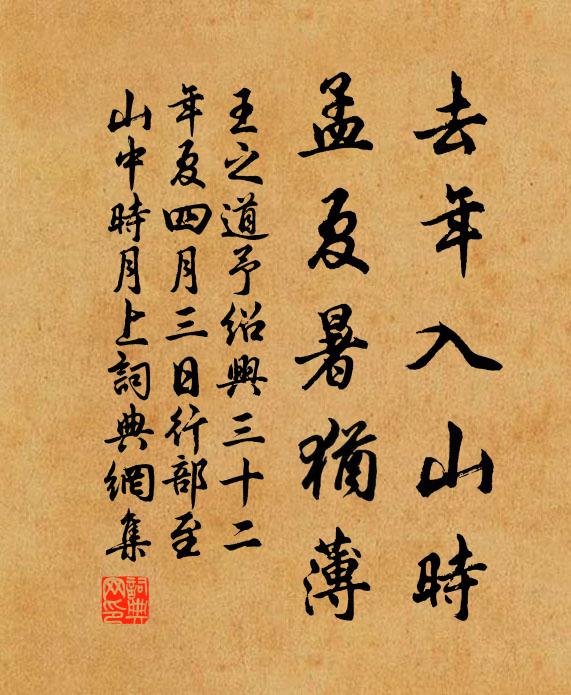 去年入山時
孟夏暑猶薄
王之道予紹興三十二
年夏四月三日行部至
山中時月上詞典網集
詞典網印